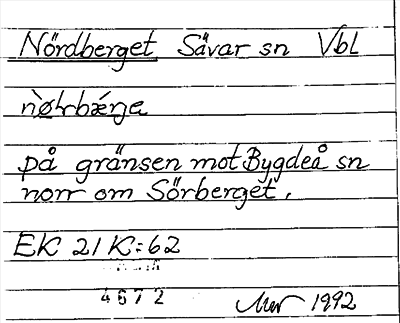 Nördberget Sävar sn Vbl
på gränsen mot Bygdeå sn
norr om Sörberget.
EK 21 K:62
4672
1992